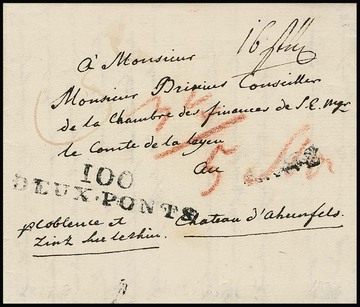 À Monsieur
Monsieur Brixius Conseiller
de la Chambre des finances de S. E. Mgr
le Comte de la Leyen
au
100
DEUX-PONTS
p Coblence et
Zintz sur le Rhin.
Chateau d'Ahrenfels.